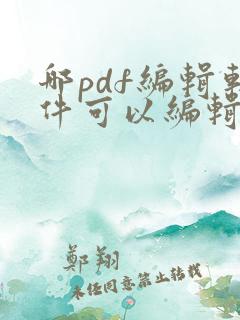 那pdf編輯軟
件可以編輯
鄭翔
未经同意禁止转载